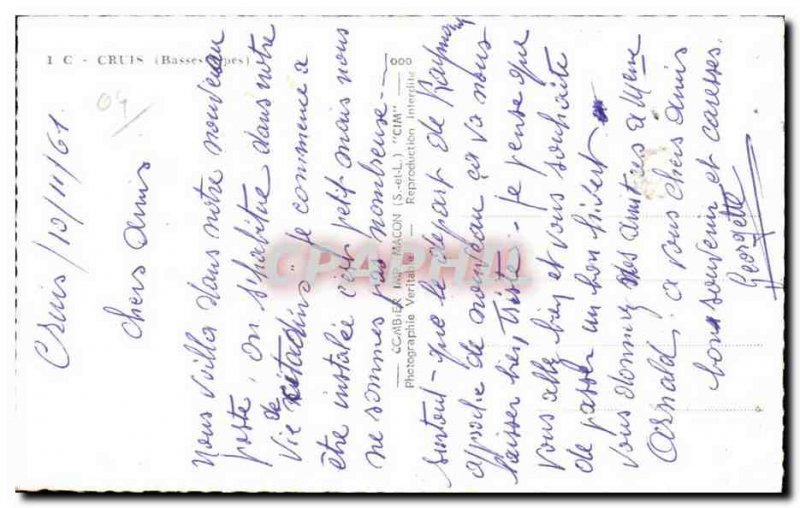 1 C - CRUIS (Basses-Alpes)
04
Cruis / 19/11/61
Chers amis
Nous voilla dans notre nouveau
poste. On s'habitue dans notre
vie de citadins. Je commence à
être installée c'est petit mais nous
ne sommes pas nombreuse -
surtout que le départ de Raymond
approche de nouveau ça va nous
laisser bien triste - Je pense que
vous allez bien et vous souhaite
de passer un bon hivert
vous donnez nos amitiés à Mme
Arnald, à vous chers amis
bons souvenir et caresses.
Georgette
COMBIER IMP. MACON (S.-et-L.) "CIM"
Photographie Veritable - Reproduction Interdite
000
CPAPHIL